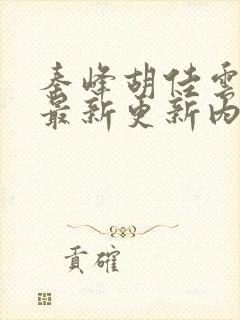 秦峰胡佳雲
最新更新內
貢確